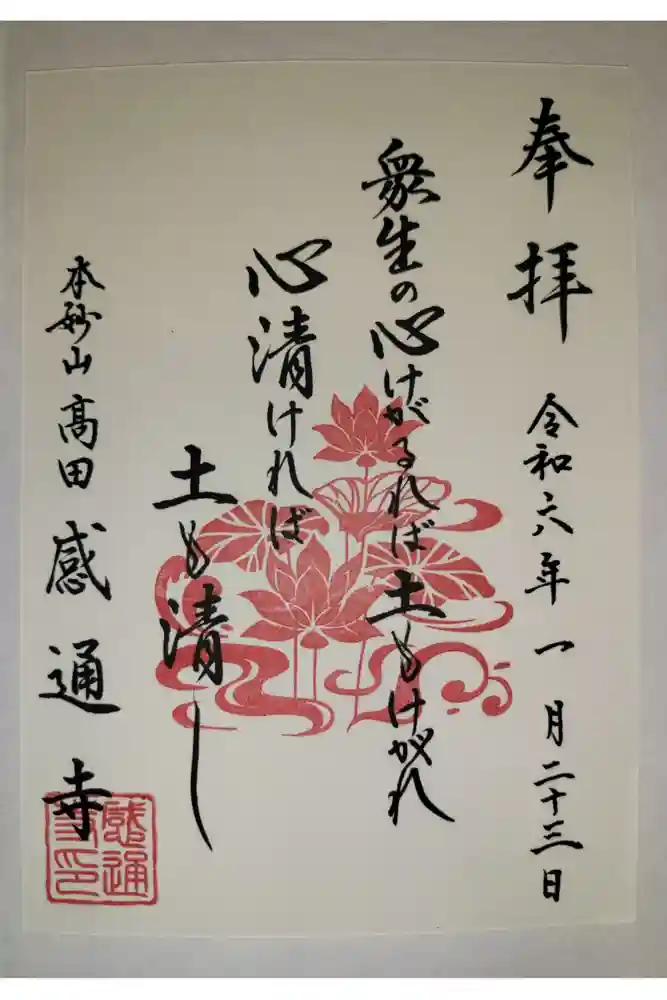 奉拝 令和六年一月二十三日
衆生の心けがるれば土もけがれ
心清ければ
土も清し
本妙山高田感通寺
感通寺印